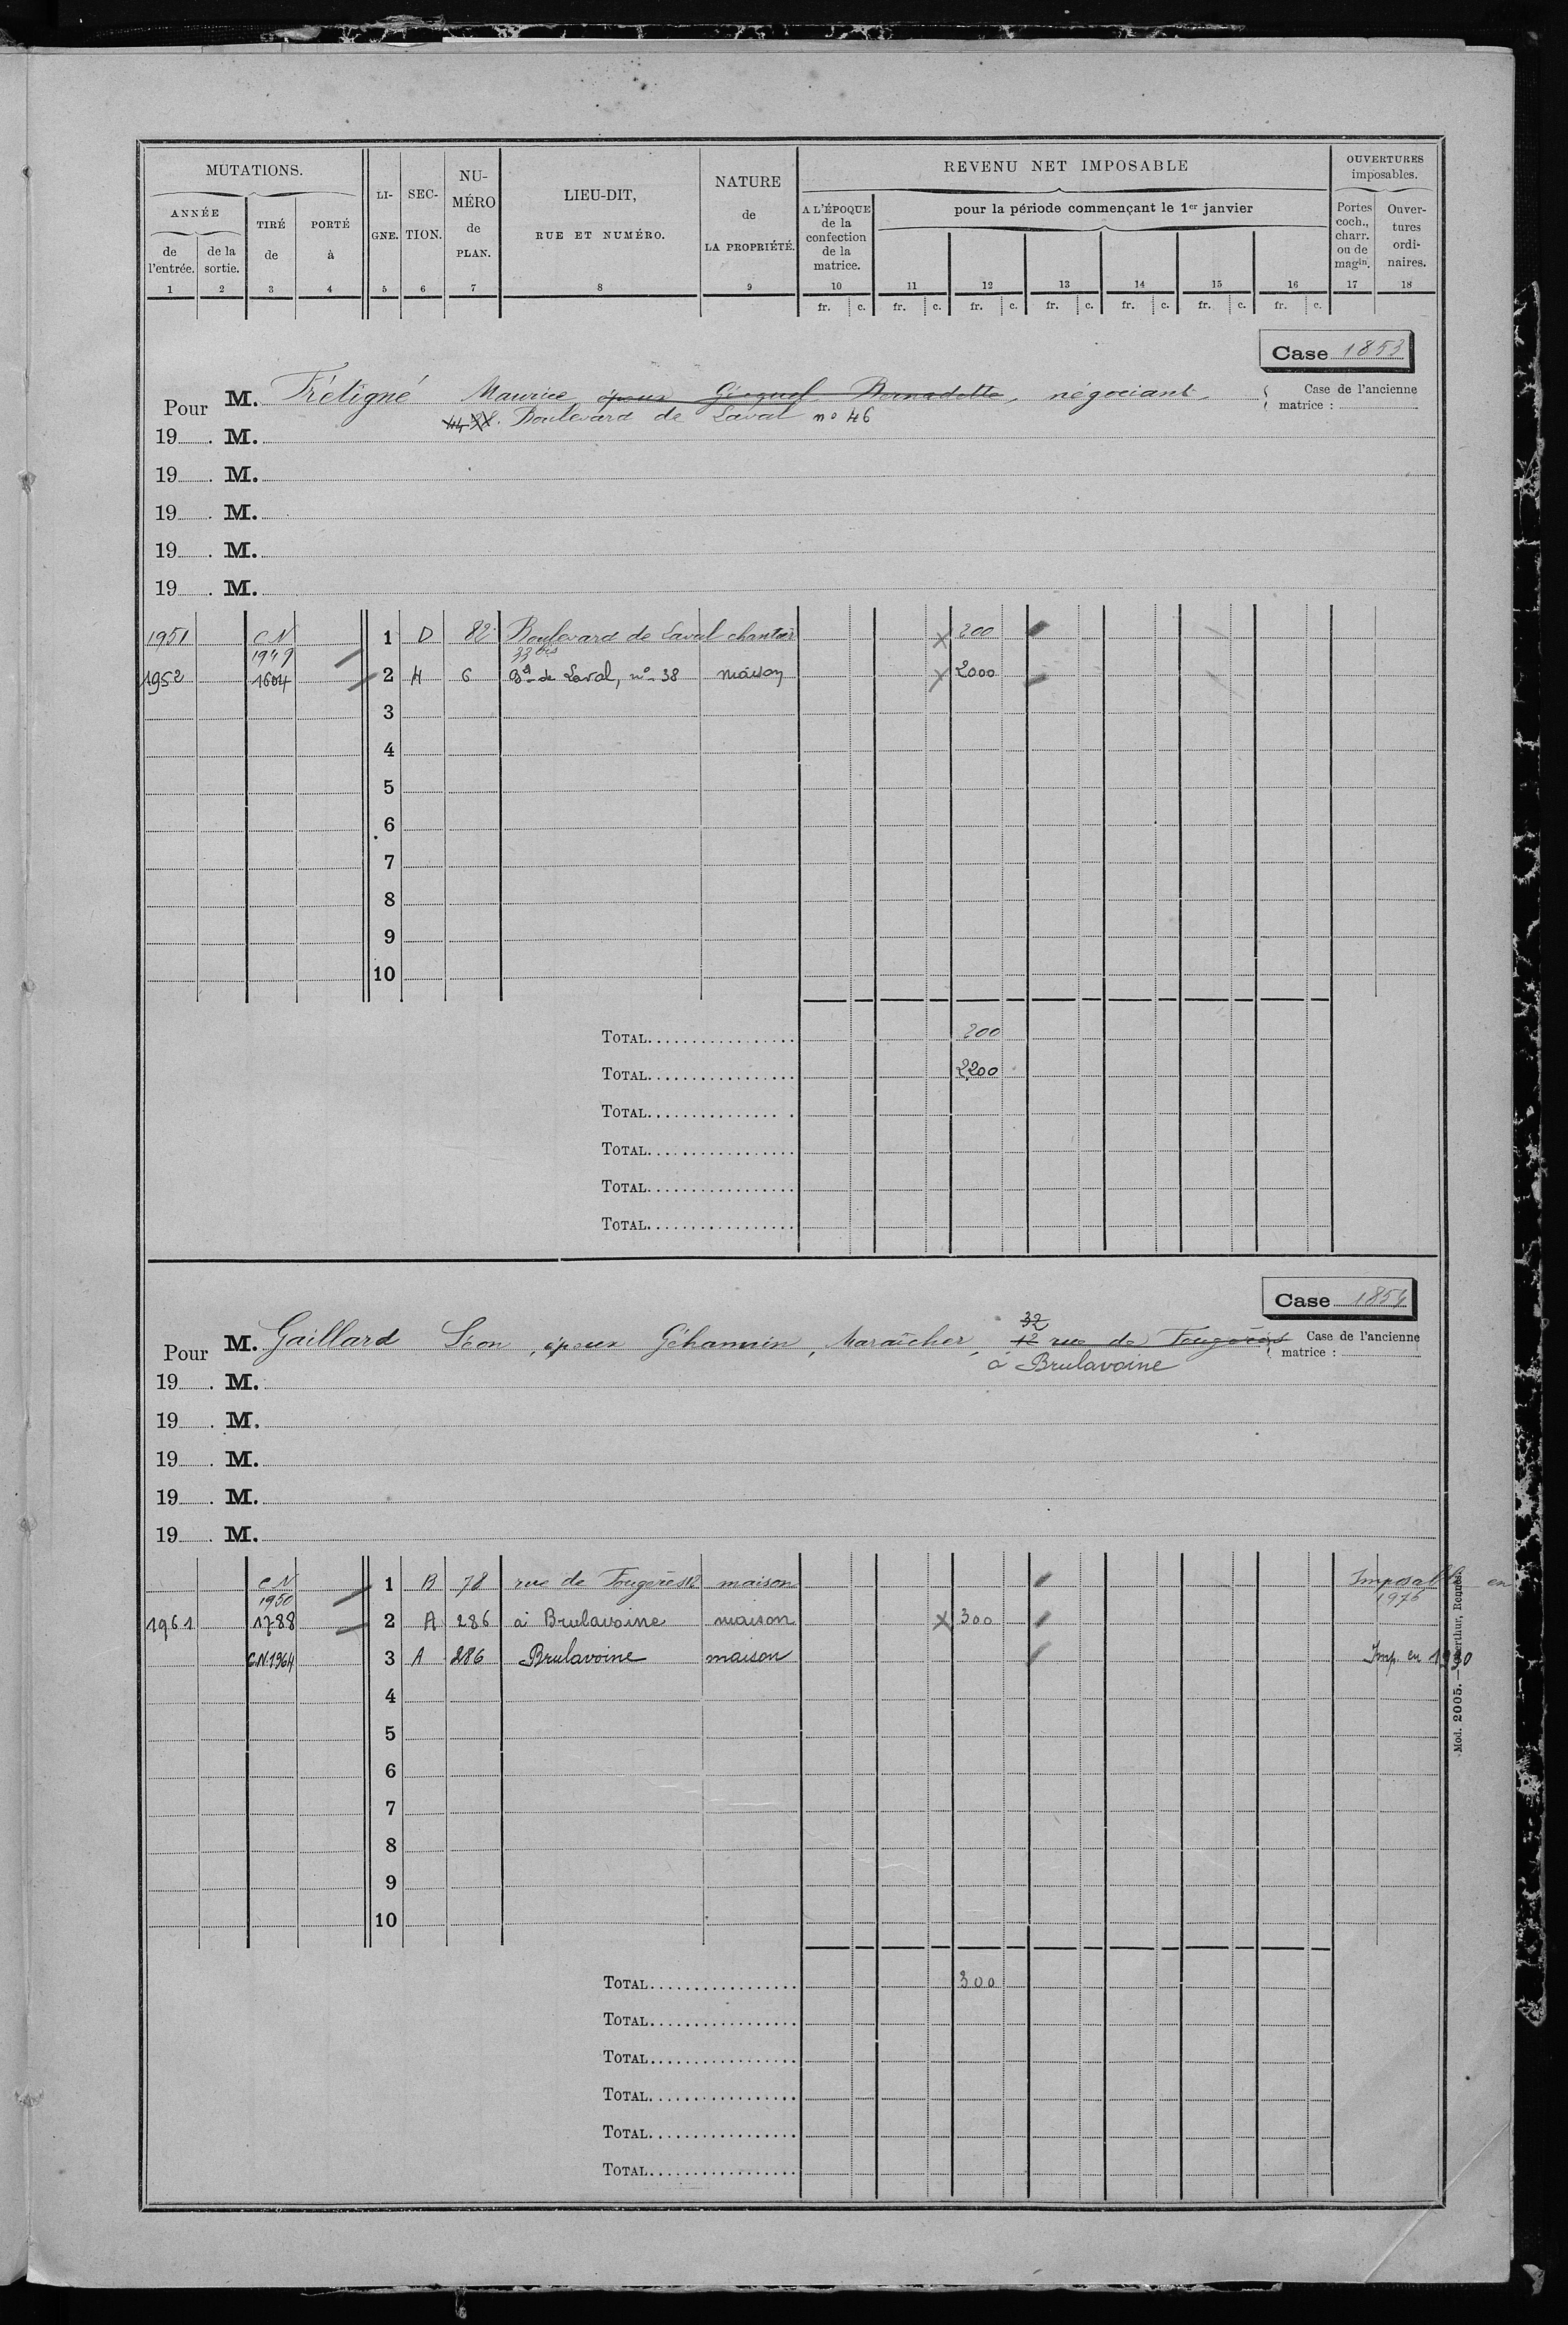 MUTATIONS.
ANNÉE
de l'entrée.
de la sortie.
TIRÉ de
PORTÉ à
LI-GNE.
SEC-TION.
NU-MÉRO de PLAN.
LIEU-DIT,
RUE ET NUMÉRO.
NATURE de LA PROPRIÉTÉ.
REVENU NET IMPOSABLE
A L'ÉPOQUE de la confection de la matrice.
pour la période commençant le 1er janvier
OUVERTURES imposables.
Portes coch., charr. ou de magin.
Ouver-tures ordi-naires.
1 2 3 4 5 6 7 8 9 10 11 12 13 14 15 16 17 18
fr. c. fr. c. fr. c. fr. c. fr. c. fr. c. fr. c.
Case 1853
Pour M. Fretigné Maurice, époux Bernadette, négociant
Case de l'ancienne matrice :
Boulevard de Laval n° 46
19 . M.
19 . M.
19 . M.
19 . M.
19 . M.
1951 CN 1949 1 D 82 Boulevard de Laval chantier 200
33 bis
1952 1604 2 H 6 Bd de Laval, n° 38 maison 2000
3
4
5
6
7
8
9
10
TOTAL 200
TOTAL 2200
TOTAL
TOTAL
TOTAL
TOTAL
Case 1854
32
Pour M. Gaillard Léon, époux Géhannin, Maraîcher, 12 rue de Fougères
Case de l'ancienne matrice :
à Brulavoine
19 . M.
19 . M.
19 . M.
19 . M.
19 . M.
CN 1950 1 B 78 rue de Fougères 12 maison Imposable en 1976
1961 1788 2 A 286 à Brulavoine maison 300
C.N. 1964 3 A 286 Brulavoine maison Imp. en 1990
4
5
6
7
8
9
10
TOTAL 300
TOTAL
TOTAL
TOTAL
TOTAL
TOTAL
Mod. 2005. — Oberthur, Rennes.